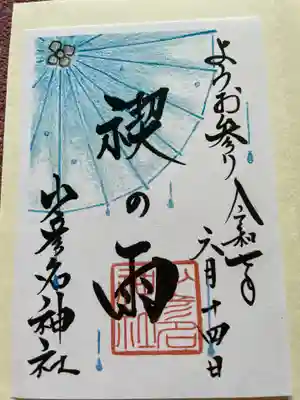 ようお参り 令和
六月十四日
禊の雨
少彦名神社